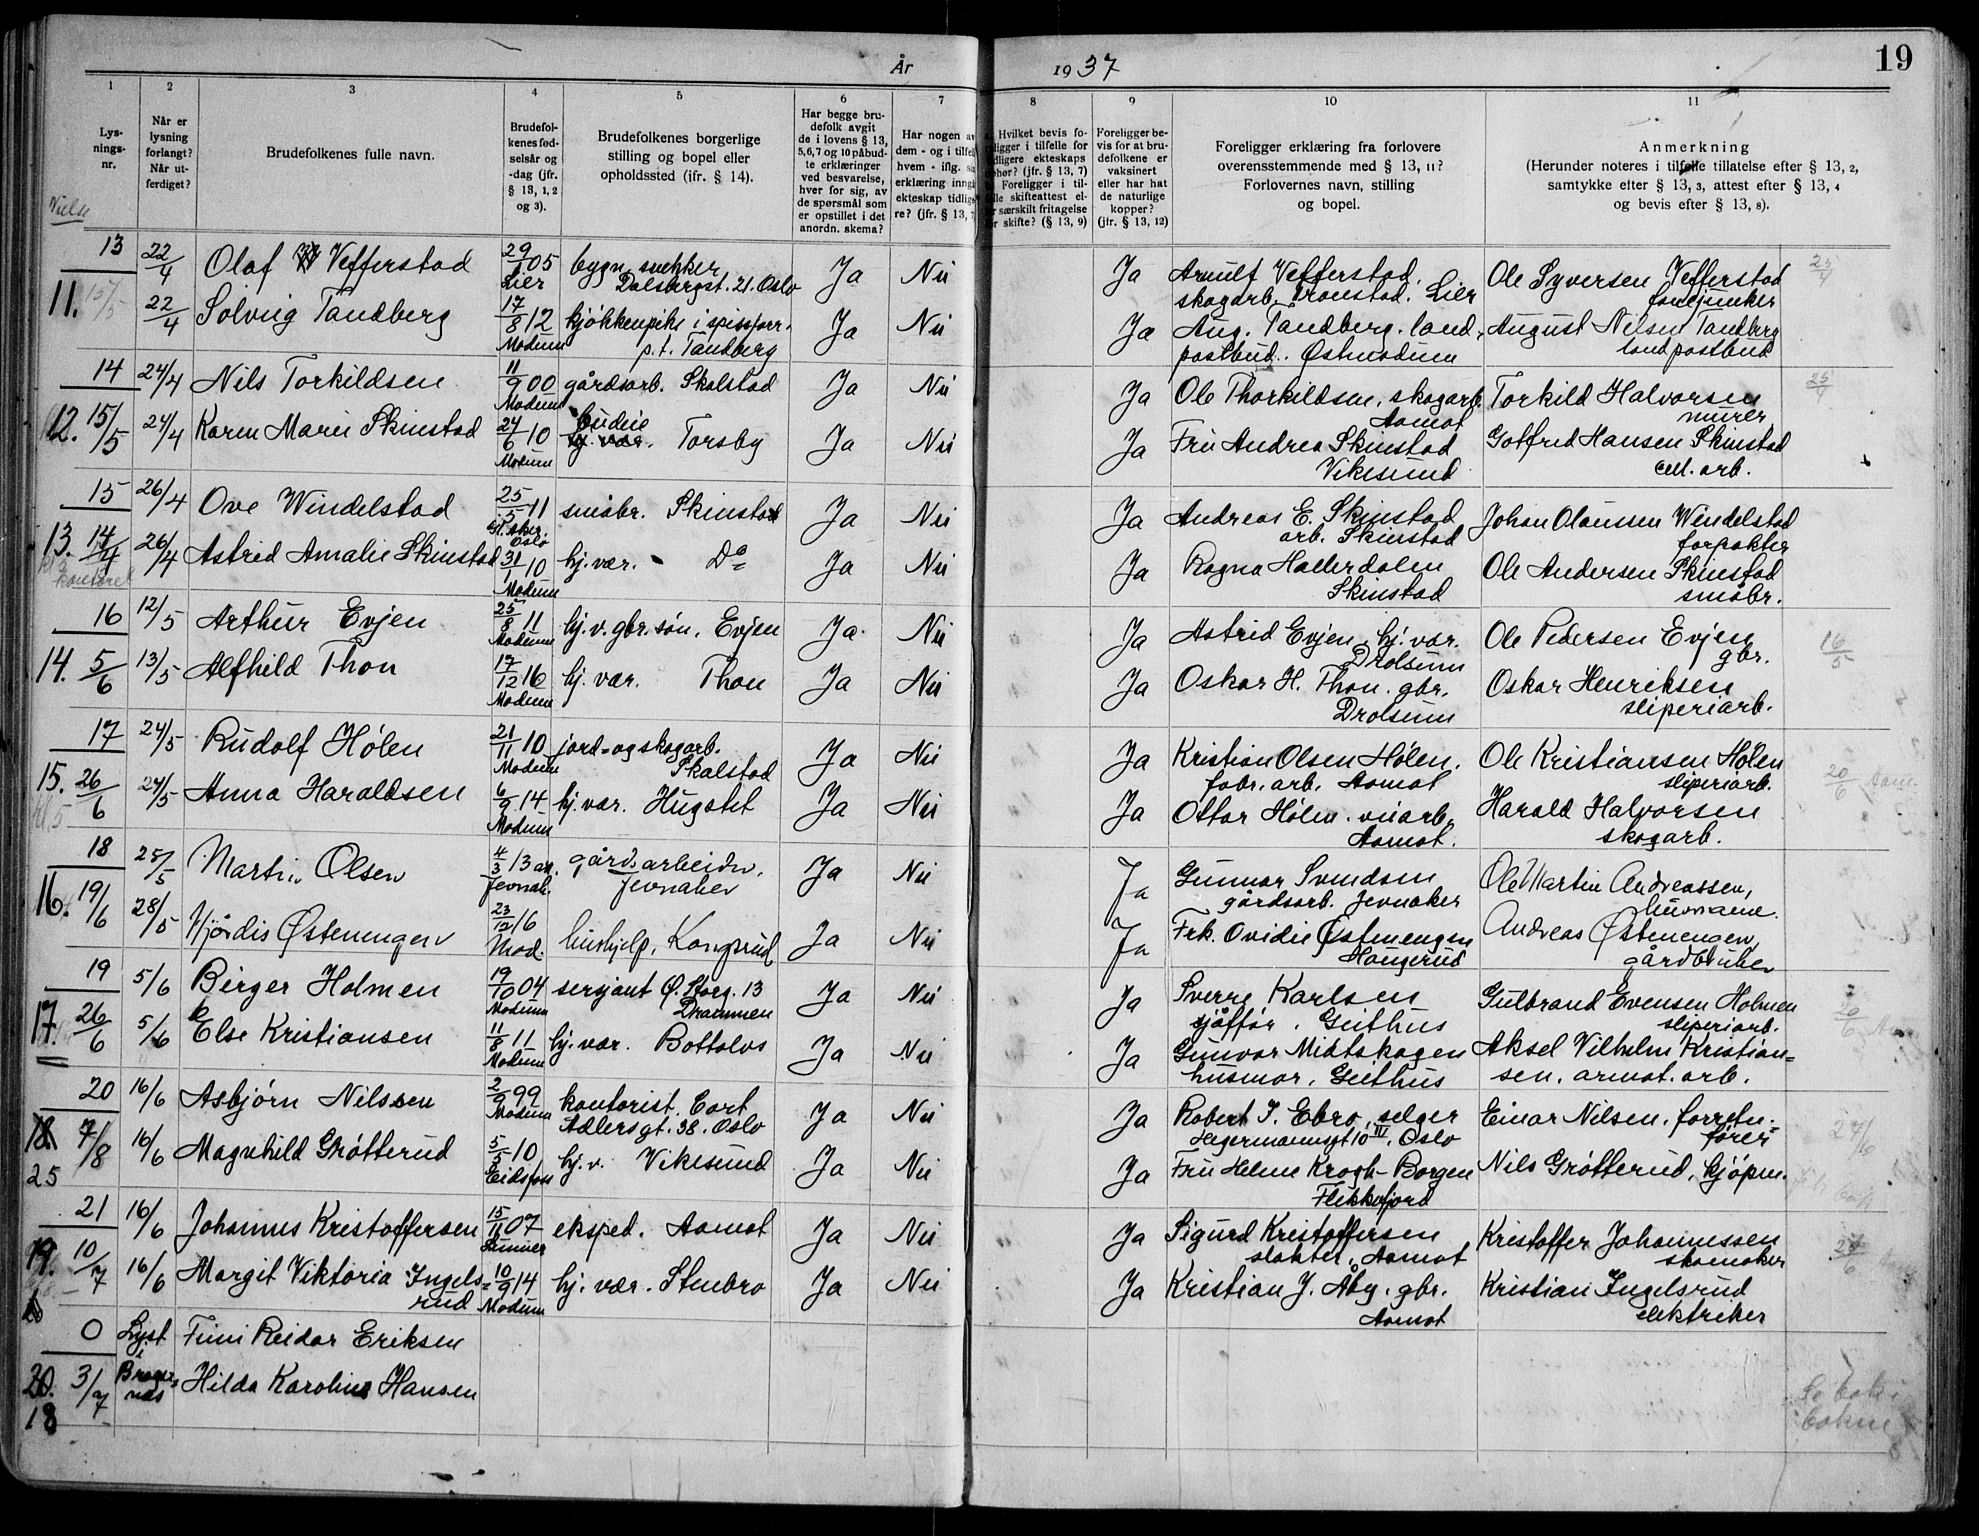 År 1937
19
1 2 3 4 5 6 7 8 9 10 11
Lys-
nings-
nr.
Når er
lysning
forlangt?
Når ut-
ferdiget?
Brudefolkenes fulle navn.
Brudefol-
kenes fød-
selsår og
-dag (jfr.
§ 13, 1, 2
og 3).
Brudefolkenes borgerlige
stilling og bopel eller
opholdssted (ifr. § 14).
Har begge bru-
defolk avgit
de i lovens § 13,
5,6,7 og 10 påbud-
te erklæringer
ved besvarelse,
hver for sig, av
de spørsmål som
er opstillet i det
anordn. skema?
Har nogen av
dem - og i tilfelle
hvem - iflg.
erklæring inngå
ekteskap tidlig
re? (jfr. § 13, 7
Hvilket bevis fo-
ligger i tilfelle for
dligere ekteskaps
phør? (jfr. § 13, 7)
Foreligger i til-
lle skifteattest el-
r særskilt fritagelse
r skifte? (§ 13, 9)
Foreligger be-
vis for at bru-
defolkene er
vaksinert
eller har hat
de naturlige
kopper?
(jfr. § 13, 12)
Foreligger erklæring fra forlovere
overensstemmende med § 13, 11?
Forlovernes navn, stilling
og bopel.
Anmerkning
(Herunder noteres i tilfelle tillatelse efter § 13, 2,
samtykke efter § 13, 3, attest efter § 13, 4
og bevis efter § 13, 8).
Vielse
13 22/4 Olaf Vefferstad 29/1 05 Lier bygn. snekker Dalsbergst. 21. Oslo Ja Nei Ja Arnulf Vefferstad, skogarb. Tronstad. Lier Ole Syversen Vefferstad fanejunker 25/4
11. 15/5 22/4 Solveig Tandberg 17/8 12 Modum kjøkkenpike i spiseforr. p.t. Tandberg Ja Nei Ja Aug. Tandberg. land. postbud. Østmodum August Nilsen Tandberg landpostbud
14 24/4 Nils Torkildsen 11/9 00 Modum gårdsarb. Skalstad Ja Nei Ja Ole Thorkildsen, skogarb. Aamot Torkild Halvorsen murer 25/4
12. 15/5 24/4 Karen Marie Skinstad 24/6 10 Modum budeie hj. vær. Torsby Ja Nei Ja Fru Andrea Skinstad Vikesund Gotfred Hansen Skinstad cell. arb.
15 26/4 Ove Windelstad 25/5 11 V. Aker Oslo småbr. Skinstad Ja Nei Ja Andreas E. Skinstad arb. Skinstad Johan Olaussen Windelstad forpakter
13. 14/4 kontoret 26/4 Astrid Amalie Skinstad 31/1 10 Modum hj. vær. Do Ja Nei Ja Ragna Hallerdalen Skinstad Ole Andersen Skinstad småbr.
16 12/5 Arthur Evjen 25/8 11 Modum hj. v. gbr. søn. Evjen Ja. Nei Ja Astrid Evjen, hj. vær. Drolsum Ole Pedersen Evjen gbr. 16/5
14. 5/6 13/5 Alfhild Thon 17/12 16 Modum hj. vær. Thon Ja Nei Ja Oskar H. Thon. gbr. Drolsum Oskar Henriksen sliperiarb.
17 24/5 Rudolf Hølen 21/11 10 Modum jord- og skogarb. Skalstad Ja Nei Ja Kristian Olsen Hølen, fabr. arb. Aamot Ole Kristiansen Hølen sliperiarb. 20/6
15. 26/6 kl. 5 24/5 Anna Haraldsen 6/9 14 Modum hj. vær. Hugstet Ja Nei Ja Ottar Hølen. veiarb. Aamot. Harald Halvorsen skogarb.
18 25/5 Martin Olsen 4/3 13 Jevnak. gårdsarbeider, Jevnaker Ja Nei Ja Gunnar Svendsen gårdsarb. Jevnaker Ole Martin Andreassen,
16. 19/6 28/5 Hjørdis Østenengen 23/12 16 Mod. hushjelp, Kongsrud Ja Nei Ja Frk. Ovidie Østenengen Haugerud Andreas Østenengen, gårdbruker
19 5/6 Birger Holmen 19/10 04 Modum sersjant Ø. Storg. 13 Drammen Ja Nei Ja Sverre Karlsen sjåffør. Geithus Gulbrand Evensen Holmen sliperiarb. 20/6
17. 26/6 5/6 Else Kristiansen 11/8 11 Modum hj. vær. Bottolvs Ja Nei Ja Gunvor Midtskogen husmor, Geithus Aksel Vilhelm Kristian-
sen. armat. arb.
20 16/6 Asbjørn Nilssen 2/9 99 Modum kontorist. Cort Adlersgt. 38. Oslo Ja Nei Ja Robert I. Ebro, selger Hegermannsgt 10 IV. Oslo Einar Nilsen, forretn.-
fører 27/6
18. 7/8 25 16/6 Magnhild Grøtterud 5/5 10 Eidsfoss hj. v. Vikesund Ja Nei Ja Fru Helene Krogh-Borgen Flekkefjord Nils Grøtterud, kjøpm.
21 16/6 Johannes Kristoffersen 15/11 07 eksped. Aamot Ja Nei Ja Sigurd Kristoffersen slakter, Aamot Kristoffer Johannessen skomaker 27/6
19. 10/7 16/6 Margit Viktoria Ingels-
rud 10/9 14 Modum hj. vær. Stenbro Ja Nei Ja Kristian J. Åby. gbr. Aamot Kristian Ingelsrud elektriker
0 Lyst i Brager-
nes Finn Reidar Eriksen
20. 3/7 18 Hilda Karoline Hansen